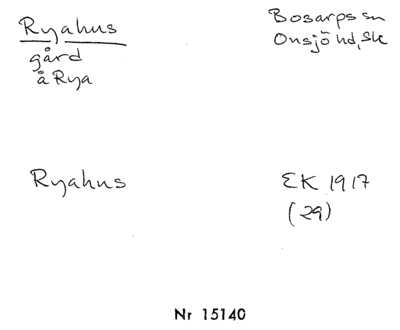 Ryahus
gård
å Rya
Bosarps sn
Onsjö hd, Sk
Ryahus
EK 1917
(29)
Nr 15140